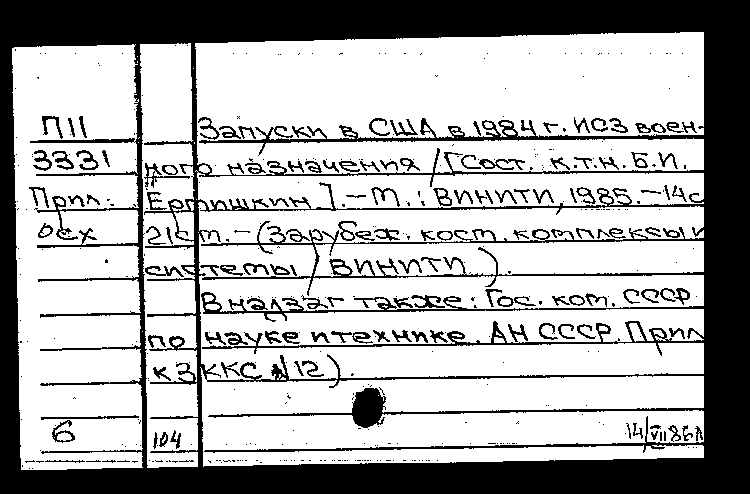 П11 Запуски в США в 1984 г. ИСЗ воен-
3331 ного назначения / [Сост. к.т.н. Б.И.
Прил: Ертишкин]. - М.: ВИНИТИ, 1985. - 14с
осх 21см. - (Зарубеж. косм. комплексы и
системы / ВИНИТИ).
В надзаг также: Гос. ком. СССР
по науке и технике. АН СССР. Прил
к ЗККС №12).
6 104 14/VII 86